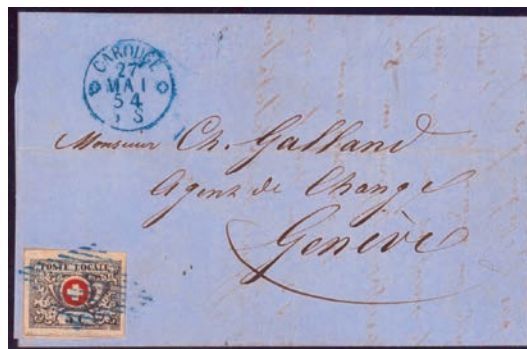 CAROUGE
27
MAI
54
Monsieur Ch. Galland
Agent de Change
Genève
POSTE LOCALE
5 C.